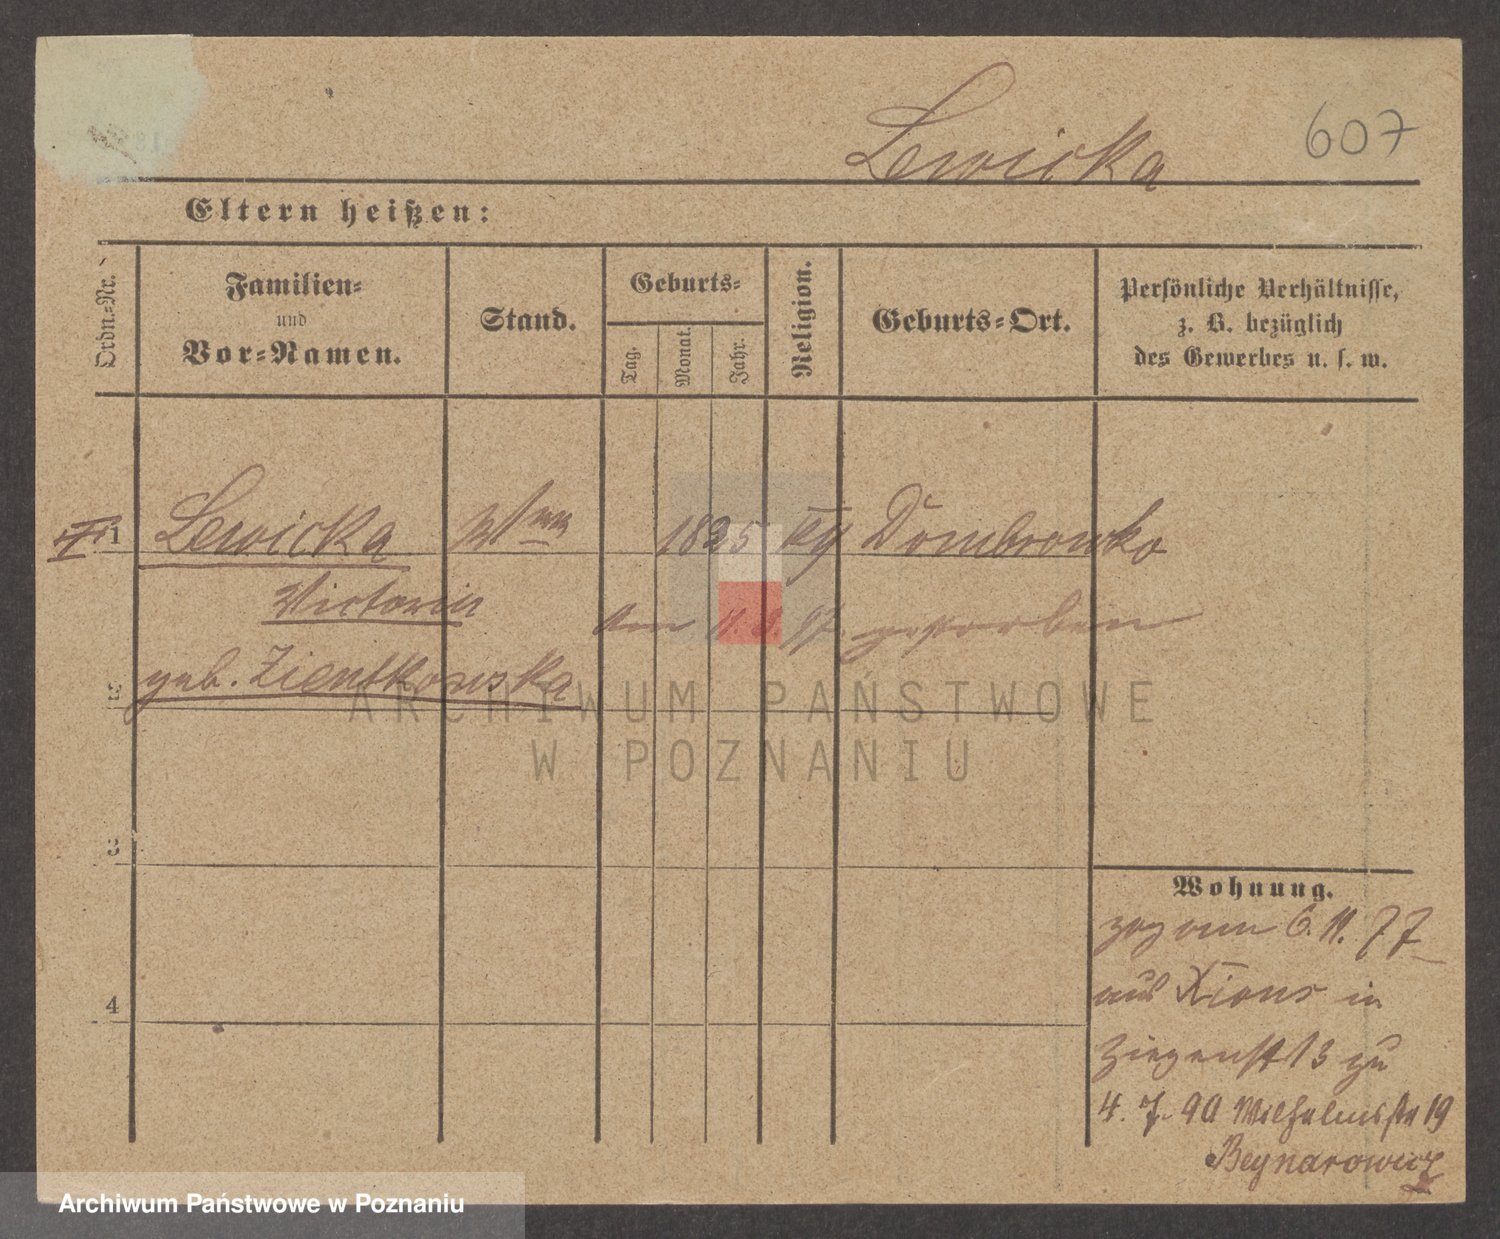 Lewicka 607
Eltern heißen:
Ordn.-Nr.
Familien-
und
Vor-Namen.
Stand.
Geburts-
Tag.
Monat.
Jahr.
Religion.
Geburts-Ort.
Persönliche Verhältnisse,
z. B. bezüglich
des Gewerbes u. s. w.
1 Lewicka Wwe 1835 Dombrowko
Victoria
am 11. 97 gestorben
2 geb. Zientkowska
ARCHIWUM PAŃSTWOWE
W POZNANIU
3
4
Wohnung.
zog am 6. 11. 77
aus Xions in
Ziegenst 13 zu
4. 7. 90 Wilhelmsstr 19
Beynarowicz
Archiwum Państwowe w Poznaniu